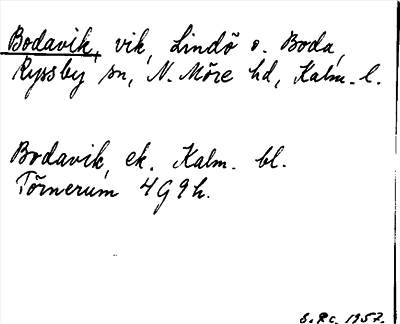 Bodavik, vik, Lindö o. Boda,
Ryssby sn, N. Möre hd, Kalm. l.
Bodavik, ek. Kalm. bl.
Törnerum 4G9h.
S.Rc. 1957.